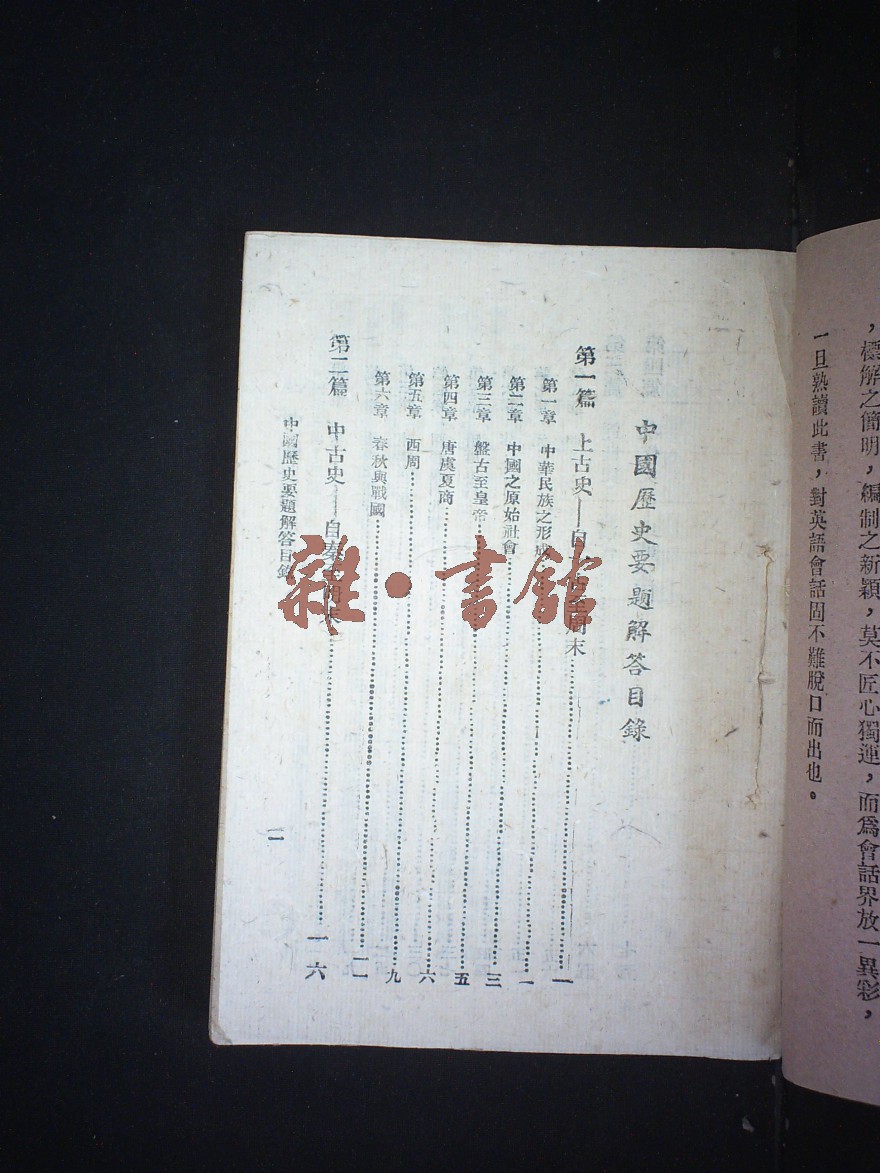 ，標解之簡明，編制之新穎，莫不匠心獨運，而爲會話界放一異彩，
一旦熟讀此書，對英語會話固不難脫口而出也。
中國歷史要題解答目錄
第一篇 上古史——自 古至周末……一
第一章 中華民族之形成……一
第二章 中國之原始社會……三
第三章 盤古至皇帝……五
第四章 唐虞夏商……六
第五章 西周……九
第六章 春秋與戰國……一一
第二篇 中古史——自秦至明末……一六
中國歷史要題解答目錄
雜·書館